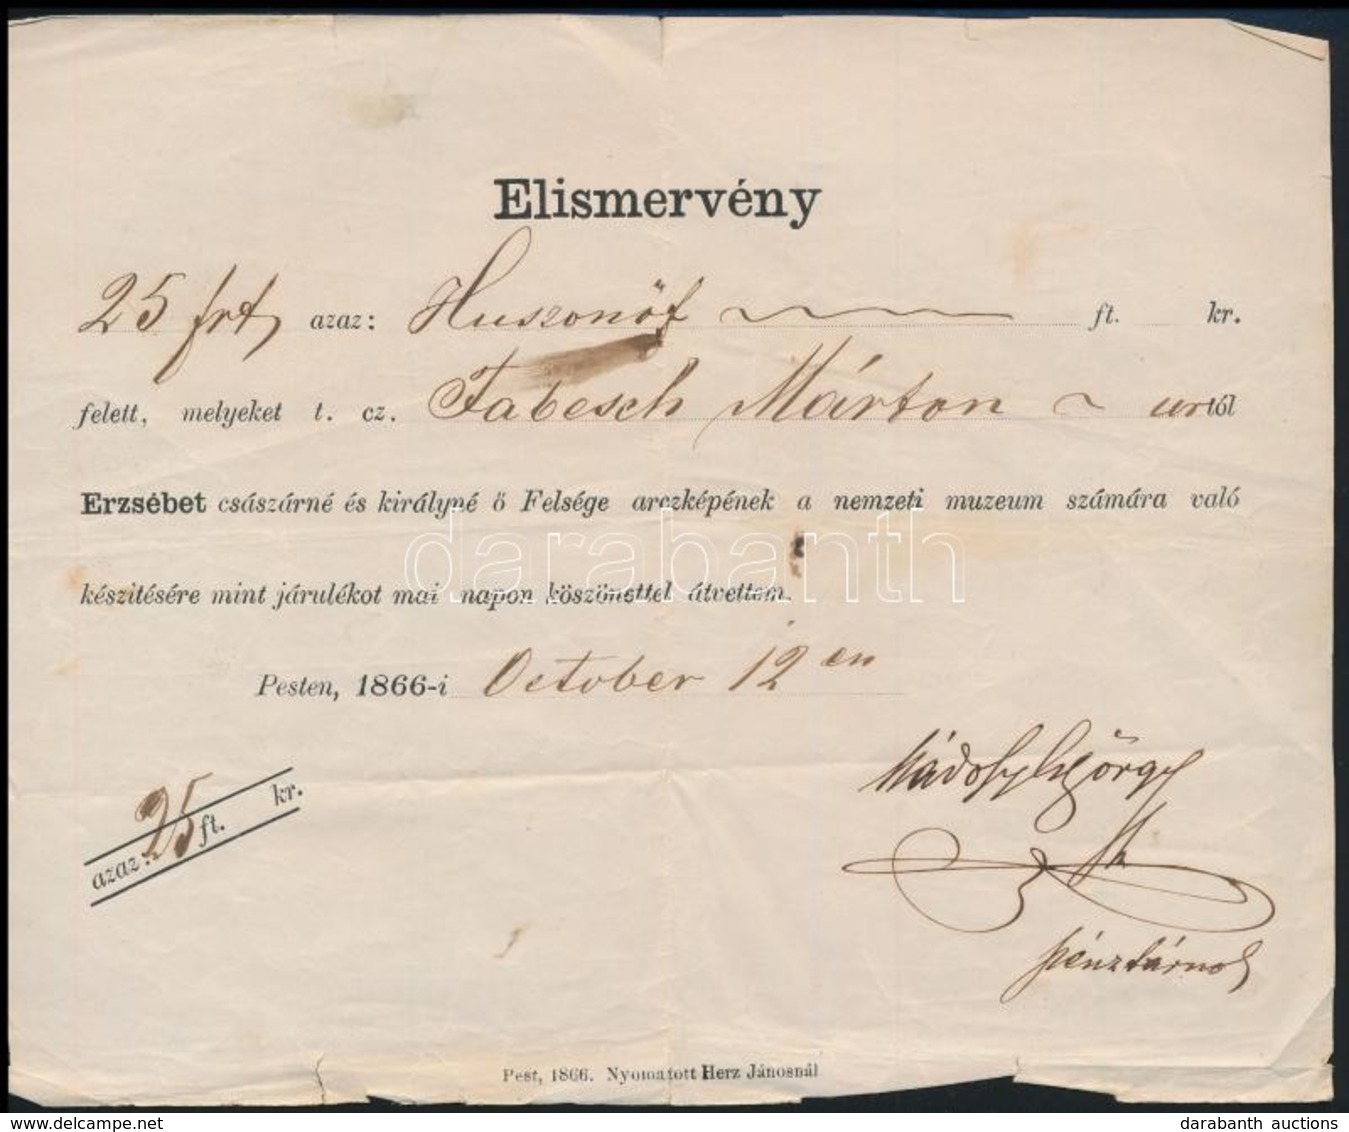 Elismervény
25 frt azaz: Huszonöt ft. kr.
felett, melyeket t. cz. Fabesch Márton urtól
Erzsébet császárné és királyné ő Felsége arczképének a nemzeti muzeum számára való
készitésére mint járulékot mai napon köszönettel átvettem.
Pesten, 1866-i October 12 en
György
azaz: 25 ft. kr.
pénztárnok
Pest, 1866. Nyomatott Herz Jánosnál
darabanth
darabanth auctions